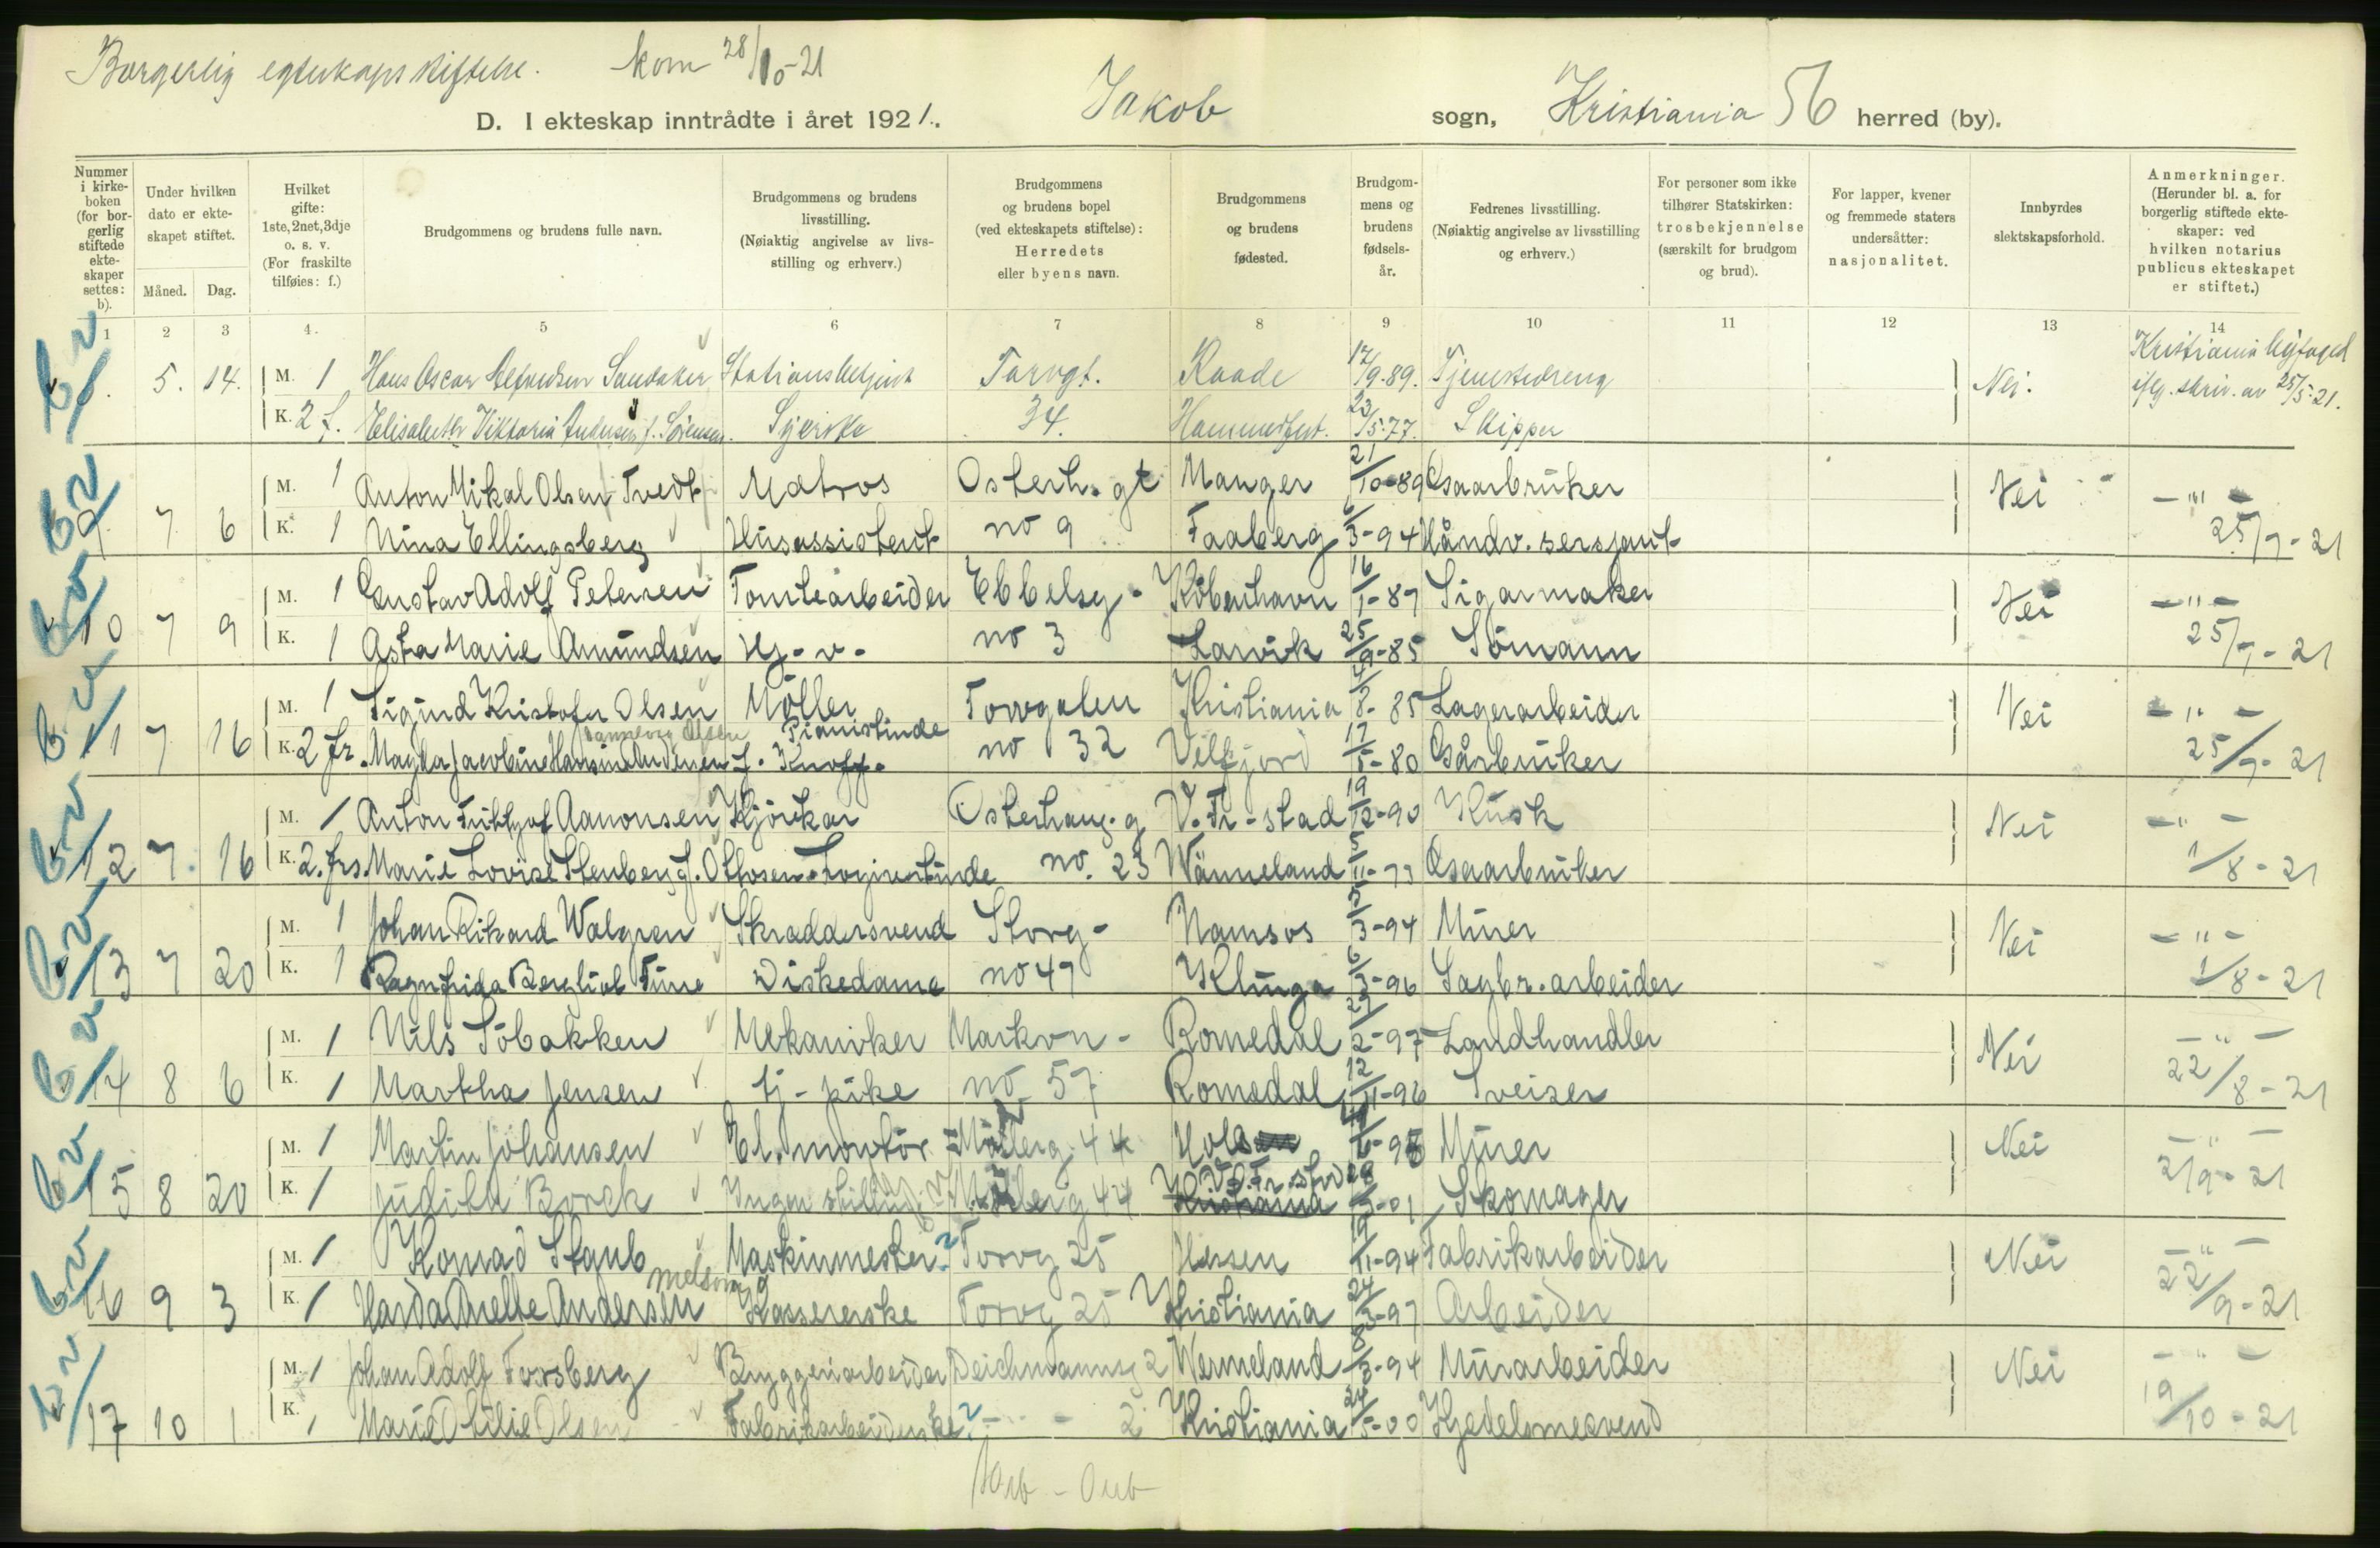 Borgerlig egteskapsstiftelse. kom 28/10-21
D. I ekteskap inntrådte i året 1921. Jakob sogn, Kristiania 56 herred (by).
Nummer i kirkeboken (for borgerlig stiftede ekteskaper settes: b).
Under hvilken dato er ekteskapet stiftet. Måned. Dag.
Hvilket gifte: 1ste, 2net, 3dje o. s. v. (For fraskilte tilføies: f.)
Brudgommens og brudens fulle navn.
Brudgommens og brudens livsstilling. (Nøiaktig angivelse av livsstilling og erhverv.)
Brudgommens og brudens bopel (ved ekteskapets stiftelse): Herredets eller byens navn.
Brudgommens og brudens fødested.
Brudgommens og brudens fødselsår.
Fedrenes livsstilling. (Nøiaktig angivelse av livsstilling og erhverv.)
For personer som ikke tilhører Statskirken: trosbekjennelse (særskilt for brudgom og brud).
For lapper, kvener og fremmede staters undersåtter: nasjonalitet.
Innbyrdes slektskapsforhold.
Anmerkninger. (Herunder bl. a. for borgerlig stiftede ekteskaper: ved hvilken notarius publicus ekteskapet er stiftet.)
1 2 3 4. 5 6 7 8 9 10 11 12 13 14
5. 14. M. 1 Hans Oscar Sandaker Stationsbetjent Torvgt. Raade 17/9-89. Tjenestedreng Nei. Kristiania byfoged
K. 2 f. Elisabeth Viktoria Andersen f. Sörensen. Syerske 34. Hammerfest. 23/5-77. Skipper iflg. skriv. av 25/5-21.
9 7 6 M. 1 Anton Mikal Olsen Tvedt Matros Osterh. gt Manger 21/10-89 Gaarbruker Nei -"-
K. 1 Nina Ellingsberg Husassistent no 9 Faaberg 6/3-94 Håndv. sersjant 25/7-21
10 7 9 M. 1 Gustav Adolf Petersen Tomtearbeider Ebbelsg- Köbenhavn 16/1-87 Sigarmaker Nei -"-
K. 1 Asta Marie Amundsen Hj-v- no 3 Larvik 25/9-85 Sömann 25/7-21
11 7 16 M. 1 Sigurd Kristofer Olsen Möller Torvgaten Kristiania 4/8-85 Lagerarbeider Nei -"-
K. 2 fr. Magda Jacobine Hansine Andersen f. Knoff. Pianistinde no 32 Velfjord 17/5-80 Gårbruker 25/7-21
12 7. 16 M. 1 Anton Frithjof Aamonsen Kjörekar Osterhaug. g V. Fr-stad 19/12-90 Kusk Nei -"-
K. 2. frs. Marie Lovise Stenberg f. Ottosen no. 23 Wärmeland 5/11-73 Gaarbruker 1/8-21
13 7 20 M. 1 Johan Rikard Walgren Skraddersvend Storg- Namsos 5/3-94 Murer Nei -"-
K. 1 Ragnfrida Bergliot Diskedame no 47 Klinga 6/3-96 Sagbr. arbeider 1/8-21
14 8 6 M. 1 Nils Söbakken Mekaniker Markvn- Romedal 27/2-97 Landhandler Nei -"-
K. 1 Martha Jensen tj-pike no 57 Romedal 12/11-96 Sveiser 22/8-21
15 8 20 M. 1 Martin Johansen El. montör Möllerg. 44 Murer Nei -"-
K. 1 Judith Borck Ingen stilling Möllerg 44 V. Fr. stad Skomager 2/9-21
16 9 3 M. 1 Konrad Staub Maskinmester Torvg 25 Hessen 19/11-94 Fabrikarbeider Nei -"-
K. 1 Andersen Kassererske Torvg 25 Kristiania 24/3-97 Arbeider 22/9-21
17 10 1 M. 1 Johan Adolf Forsberg Bryggeriarbeider Deichmannsg 2 Wermeland 8/3-94 Murarbeider Nei -"-
K. 1 Marie Otilie Olsen Fabrikarbeiderske - - 2 Kristiania 24/5-00 Kjedelsmedsvend 19/10-21